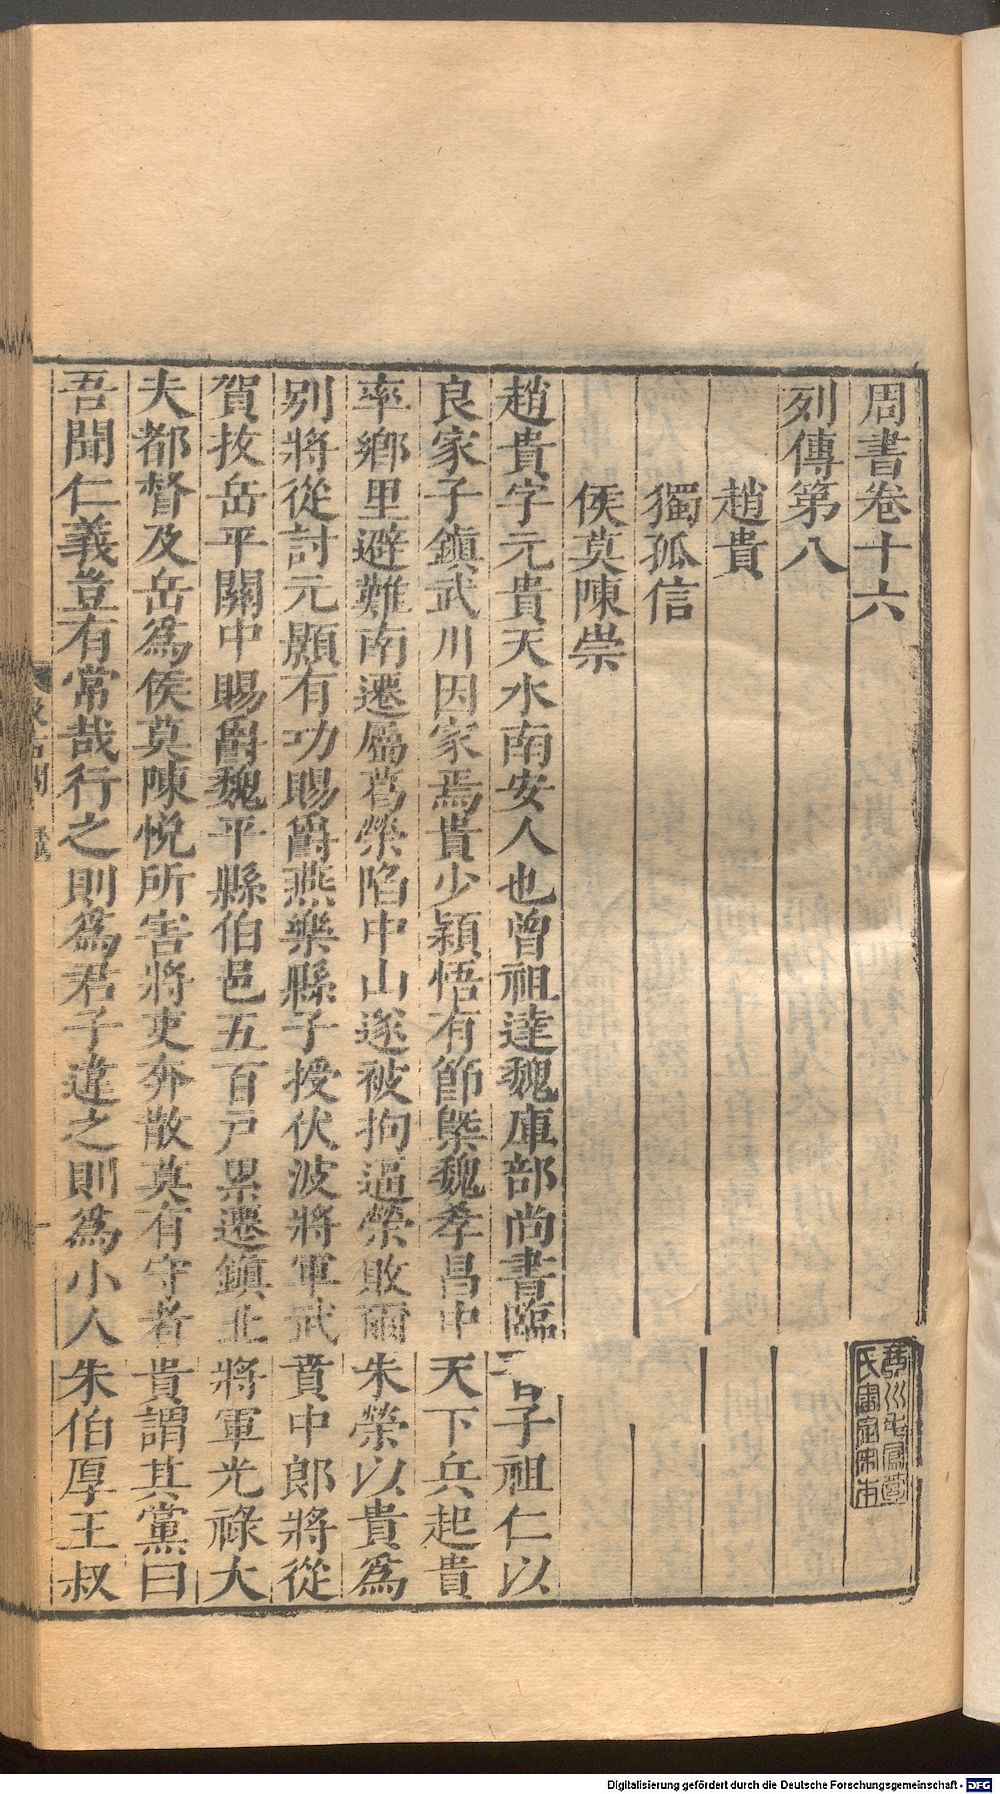 周書卷十六
列傳第八
趙貴
獨孤信
侯莫陳崇
趙貴字元貴天水南安人也曾祖達魏庫部尚書臨子祖仁以
良家子鎮武川因家焉貴少穎悟有節槩魏孝昌中天下兵起貴
率鄉里避難南遷屬葛榮陷中山遂被拘逼榮敗爾朱榮以貴爲
別將從討元顥有功賜爵燕樂縣子授伏波將軍武賁中郎將從
賀拔岳平關中賜爵魏平縣伯邑五百戸累遷鎮北將軍光祿大
夫都督及岳爲侯莫陳悅所害將吏奔散莫有守者貴謂其黨曰
吾聞仁義豈有常哉行之則爲君子違之則爲小人朱伯厚王叔
Digitalisierung gefördert durch die Deutsche Forschungsgemeinschaft - DFG